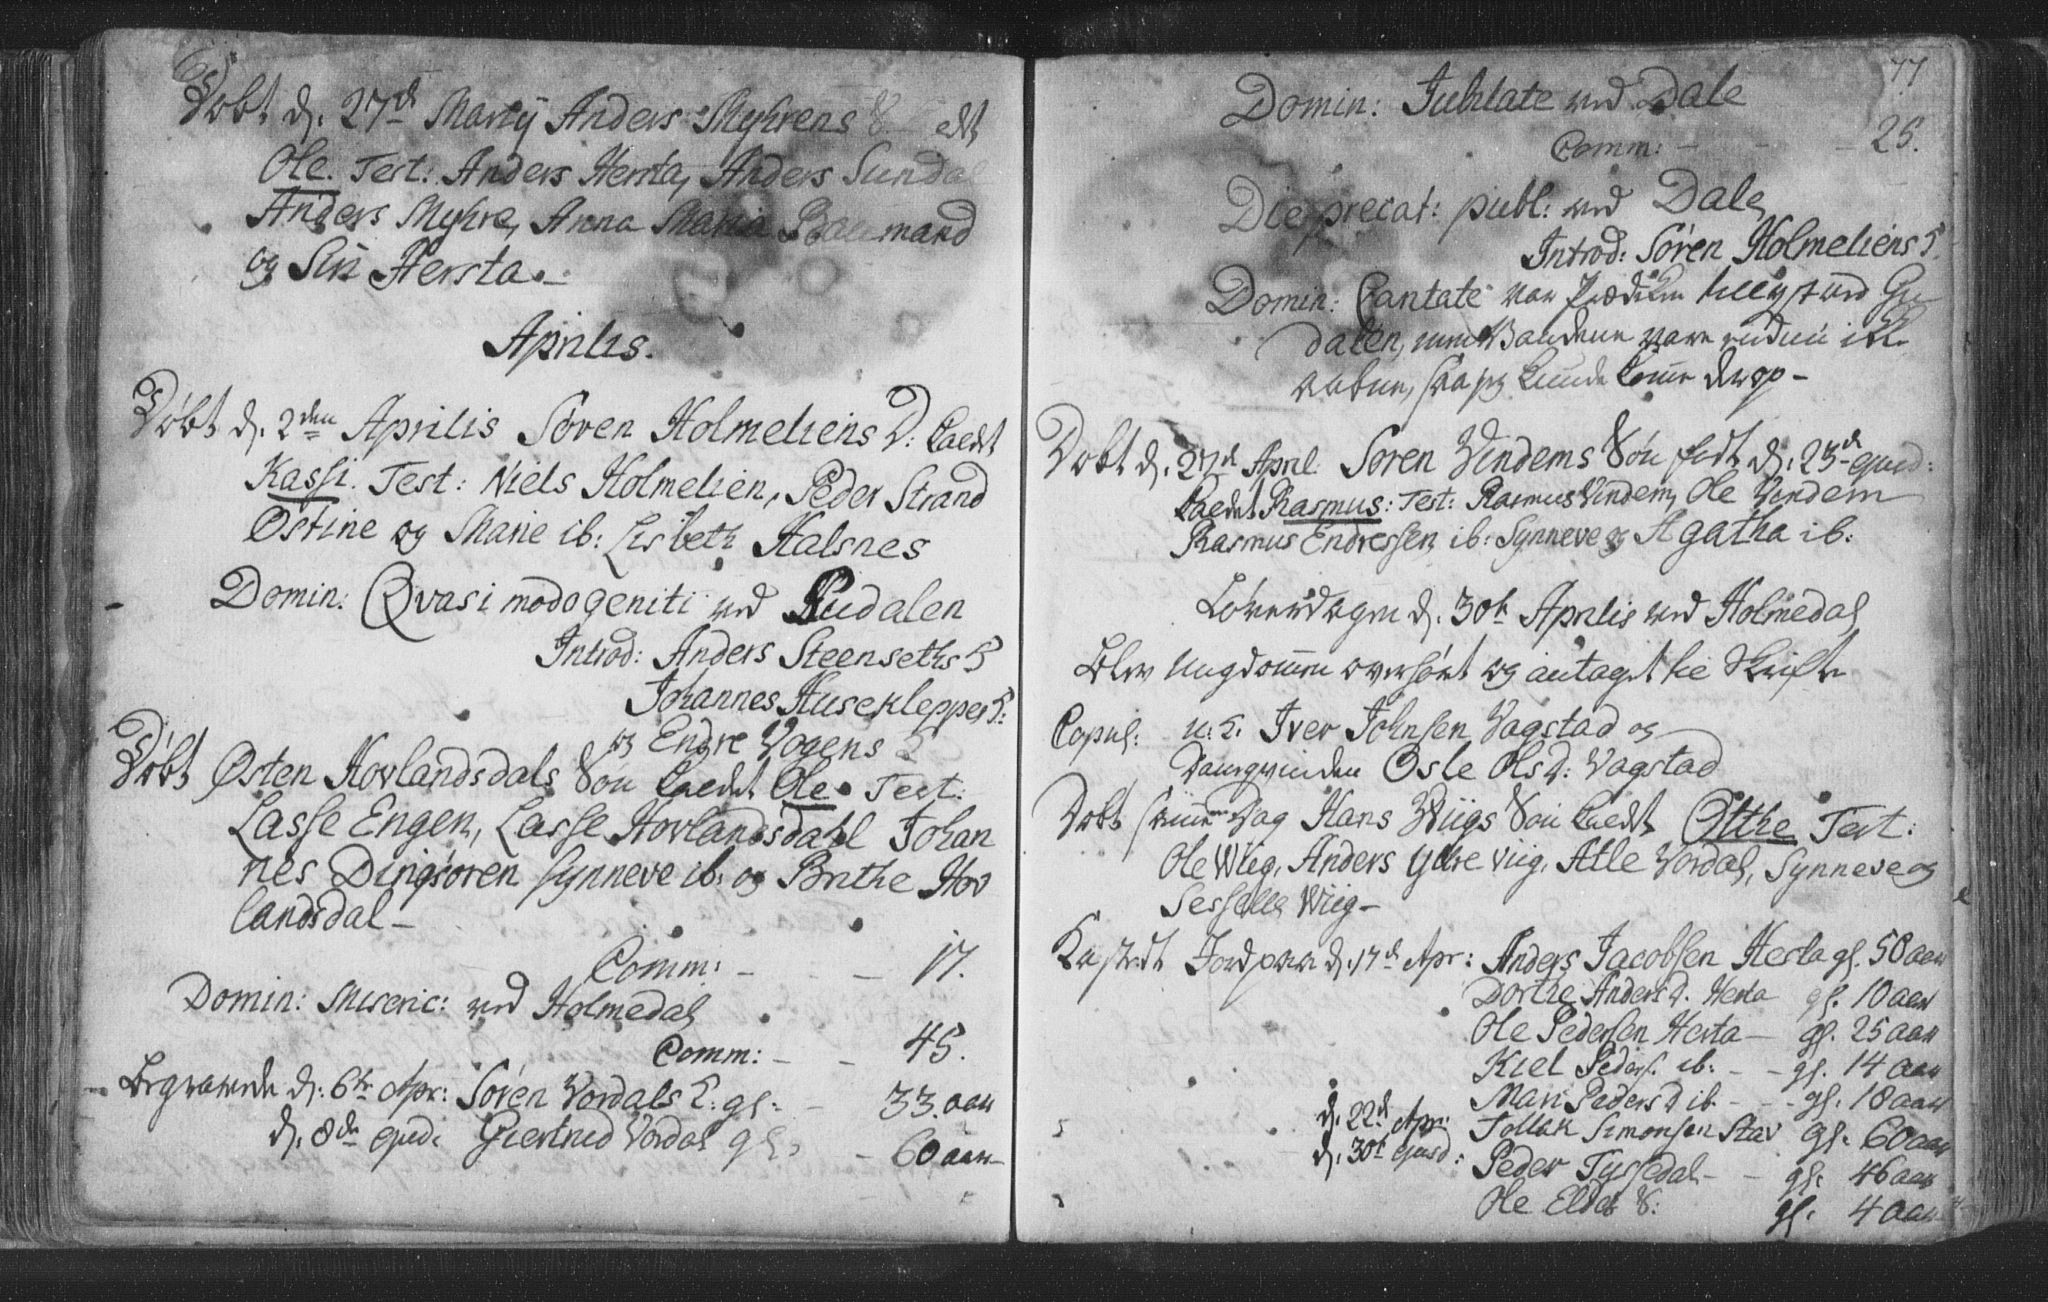 Døbt d. 27de Martij Anders Myhrens S. edt
Ole. Test: Anders Hersta, Anders Sundal
Anders Myhre, Anna Maria Baarmand
og Siri Hersta.
Aprilis.
Døbt d. 2den Aprilis Søren Holmeliens D: kaldt
Kassi. Test: Niels Holmelien, Peder Strand
Østine og Marie ib: Lisbeth Halsnes
Domin: Qvasimodogeniti ved Gudalen
Introd: Anders Steensæths H
Johannes Huseklepper H:
og Endre Vogens H
Døbt Østen Hovlandsdals Søn kaldt Ole. Test:
Lasse Engen, Lasse Hovlandsdahl Johan
nes Dingsøren Synneve ib: og Brithe Hov
landsdal -
Comm: - - - 17.
Domin: Miseric: ved Holmedal
Comm: - - 45.
Begravede d: 6te Apr: Søren Vordals H: gl: - 33. aar
d. 8de ejusd. Giertrud Vordal gl: - 60 aar
77
Domin: Jubilate ved Dale
Comm: - - - 25.
Die precat: publ: ved Dale
Introd: Søren Holmeliens H.
Domin: Cantate var Prædiken tillyst ved Gu
dalen, men Vandene vare endnu ikke
aabne, saa jeg kunde komme derop -
Døbt d. 27de April. Søren Vindems Søn født d. 23de ejusd:
kaldet Rasmus: Test: Rasmus Vindem, Ole Vindem
Rasmus Endressen ib: Synneve og Agatha ib:
Løverdagen d. 30te Aprilis ved Holmedal
blev Ungdommen overhørt og antaget til Skrifte
Copul: u. K. Iver Johnsen Vagstad og
Danqvinden Osle Olsd: Vagstad
Døbt samme Dag Hans Wiigs Søn kaldt Otthe Test:
Ole Wiig, Anders Ytre Viig, Atle Vordal, Synneve og
Sesselle Wiig -
Kastedt Jord paa d. 17de Apr: Anders Jacobsen Hersta gl. 50 aar
Dorthe Andersd. Hersta gl. 10 aar
Ole Pedersen Hersta - gl. 25 aar
Kiel Peders. ib: - - gl. 14 aar
Mari Pedersd ib. - - gl. 18 aar
d. 22de Apr: Tollak Simonsen Stav gl. 60 aar
d. 30te ejusd: Peder Tyssedal - - gl. 46 aar
Ole Eldes S: gl. 4 aar